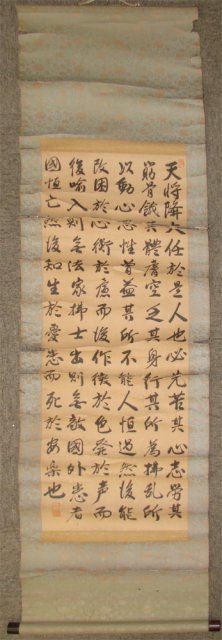 天将降大任於是人也必先苦其心志勞其
筋骨餓其體膚空乏其身行其所為拂乱所
以動心忍性曾益其所不能人恒過然後能
改困於心衡於慮而後作徴於色発於声而
後喻入則無法家拂士出則無敵國外患者
國恒亡然後知生於憂患而死於安楽也